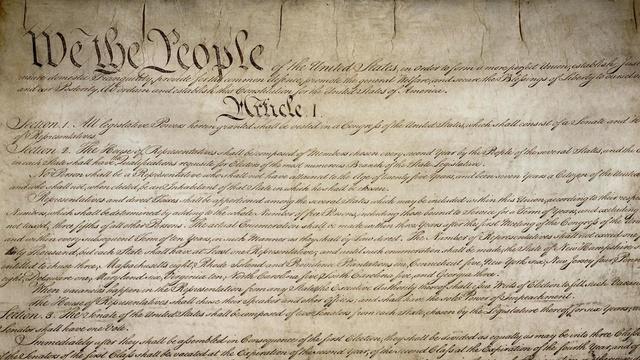 We the People of the United States, in order to form a more perfect Union, establish
insure domestic Tranquility, provide for the common defence, promote the general Welfare, and secure the Blessings of Liberty to
and our Posterity, do ordain and establish this Constitution for the United States of America.
Article. I.
Section. 1. All legislative Powers herein granted shall be vested in a Congress of the United States, which shall consist of a Senate and
of Representatives.
Section. 2. The House of Representatives shall be composed of Members chosen every second Year by the People of the several States, and the
in each State shall have Qualifications requisite for Electors of the most numerous Branch of the State Legislature.
No Person shall be a Representative who shall not have attained to the Age of twenty five Years, and been seven Years a Citizen of the United
and who shall not, when elected, be an Inhabitant of that State in which he shall be chosen.
Representatives and direct Taxes shall be apportioned among the several States which may be included within this Union, according to their
Numbers, which shall be determined by adding to the whole Number of free Persons, including those bound to Service for a Term of Years, and excluding
not taxed, three fifths of all other Persons. The actual Enumeration shall be made within three Years after the first Meeting of the Congress of the
and within every subsequent Term of ten Years, in such Manner as they shall by Law direct. The Number of Representatives shall not exceed one
thirty Thousand, but each State shall have at Least one Representative; and until such enumeration shall be made, the State of New Hampshire
entitled to chuse three, Massachusetts eight, Rhode Island and Providence Plantations one, Connecticut five, New York six, New Jersey four,
eight, Delaware one, Maryland six, Virginia ten, North Carolina five, South Carolina five, and Georgia three.
When vacancies happen in the Representation from any State, the Executive Authority thereof shall issue Writs of Election to fill such
The House of Representatives shall chuse their Speaker and other Officers; and shall have the sole Power of Impeachment.
Section. 3. The Senate of the United States shall be composed of two Senators from each State, chosen by the Legislature thereof, for six Years;
Senator shall have one Vote.
Immediately after they shall be assembled in Consequence of the first Election, they shall be divided as equally as may be into three
of the Senators of the first Class shall be vacated at the Expiration of the second Year, of the second Class at the Expiration of the fourth Year, and of